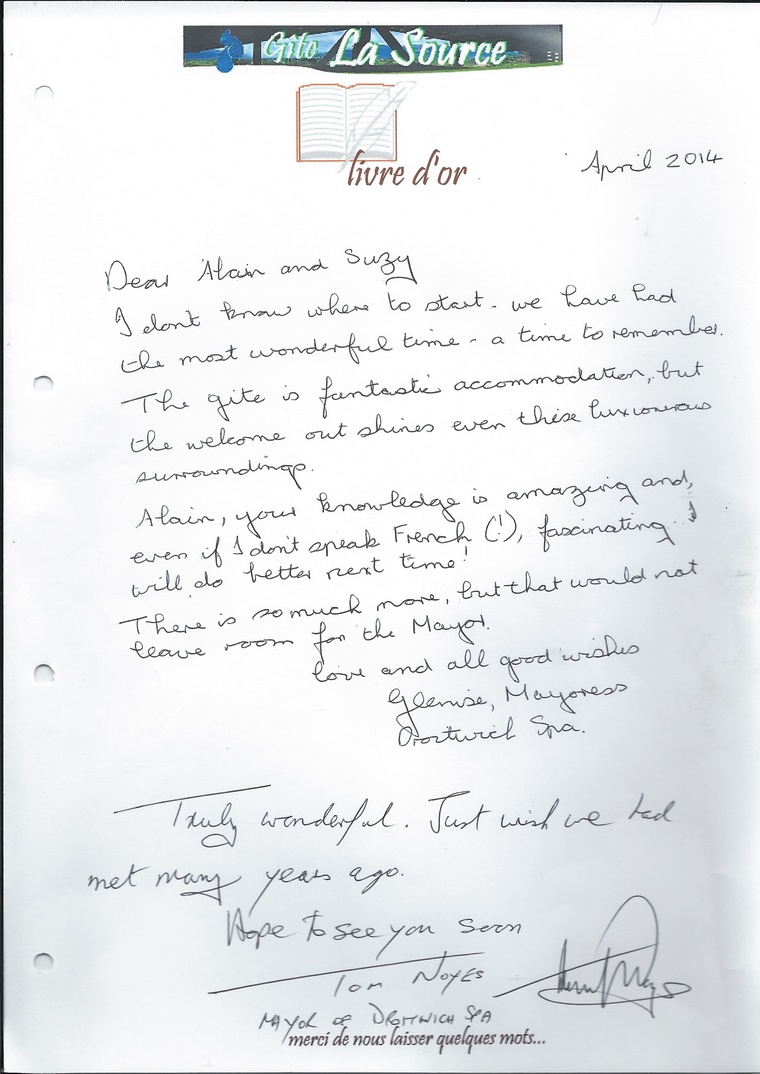 Gite La Source
livre d'or
April 2014
Dear Alain and Suzy
I don't know where to start - we have had
the most wonderful time - a time to remember.
The gite is fantastic accommodation, but
the welcome out shines even these luxiourous
surroundings.
Alain, your knowledge is amazing and,
even if I don't speak French (!), fascinating. I
will do better next time!
There is so much more, but that would not
leave room for the Mayor.
love and all good wishes
Glenise, Mayoress
Droitwich Spa.
Truly wonderful. Just wish we had
met many years ago.
Hope to see you soon
Tom Noyes
MAYOR OF DROITWICH SPA
merci de nous laisser quelques mots...